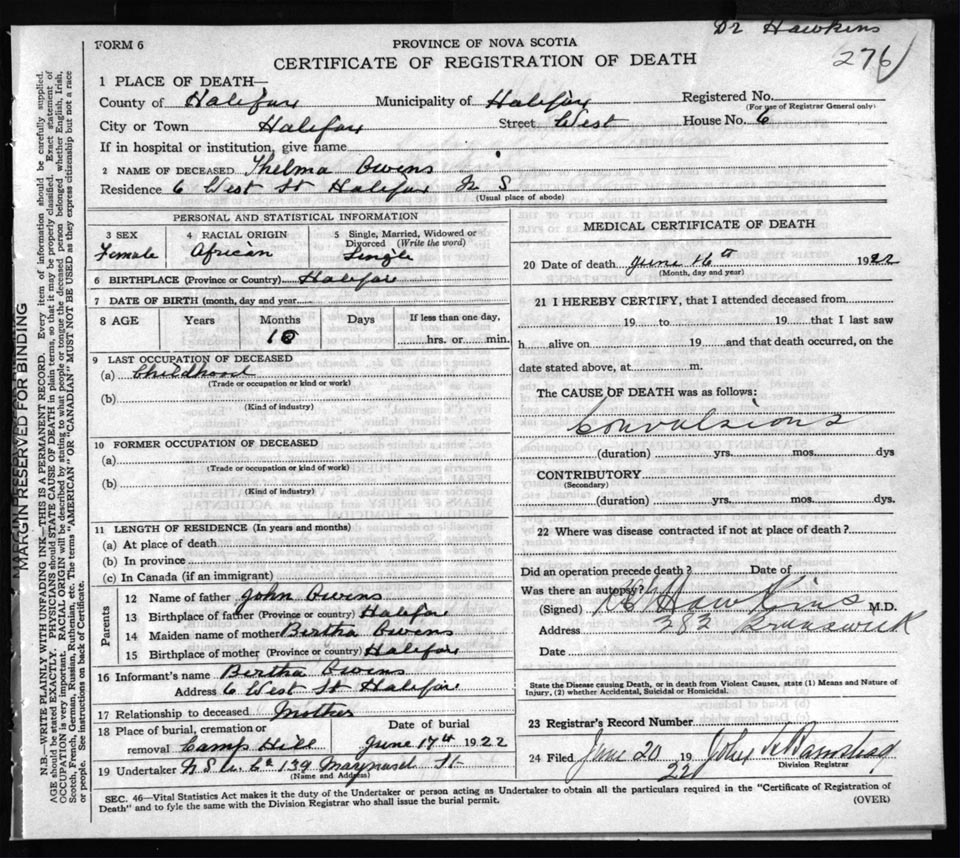 Dr Hawkins
276
FORM 6
PROVINCE OF NOVA SCOTIA
CERTIFICATE OF REGISTRATION OF DEATH
1 PLACE OF DEATH—
County of Halifax Municipality of Halifax Registered No.
(For use of Registrar General only)
City or Town Halifax Street West House No. 6
If in hospital or institution, give name
2 NAME OF DECEASED Thelma Owens
Residence 6 West St Halifax N S
(Usual place of abode)
PERSONAL AND STATISTICAL INFORMATION
3 SEX 4 RACIAL ORIGIN 5 Single, Married, Widowed or Divorced (Write the word)
Female African Single
6 BIRTHPLACE (Province or Country) Halifax
7 DATE OF BIRTH (month, day and year)
8 AGE Years Months Days If less than one day,
hrs. or min.
9 LAST OCCUPATION OF DECEASED
(a) Childhood
(Trade or occupation or kind or work)
(b)
(Kind of industry)
10 FORMER OCCUPATION OF DECEASED
(a)
(Trade or occupation or kind of work)
(b)
(Kind of industry)
11 LENGTH OF RESIDENCE (In years and months)
(a) At place of death
(b) In province
(c) In Canada (if an immigrant)
Parents
12 Name of father John Owens
13 Birthplace of father (Province or country) Halifax
14 Maiden name of mother Bertha Owens
15 Birthplace of mother (Province or country) Halifax
16 Informant's name Bertha Owens
Address 6 West St Halifax
17 Relationship to deceased Mother
18 Place of burial, cremation or removal Camp Hill
Date of burial June 17th 1922
19 Undertaker N S U Co 139 Maynard St
(Name and Address)
MEDICAL CERTIFICATE OF DEATH
20 Date of death June 16th 1922
(Month, day and year)
21 I HEREBY CERTIFY, that I attended deceased from
19 to 19 that I last saw
h alive on 19 and that death occurred, on the
date stated above, at m.
The CAUSE OF DEATH was as follows:
Convulsions
(duration) yrs. mos. dys
CONTRIBUTORY
(Secondary)
(duration) yrs. mos. dys.
22 Where was disease contracted if not at place of death?
Did an operation precede death? Date of
Was there an autopsy?
(Signed) Hawkins M.D.
Address 282 Brunswick
Date
State the Disease causing Death, or in death from Violent Causes, state (1) Means and Nature of
Injury, (2) whether Accidental, Suicidal or Homicidal.
23 Registrar's Record Number
24 Filed June 20 19 22
Division Registrar
SEC. 46—Vital Statistics Act makes it the duty of the Undertaker or person acting as Undertaker to obtain all the particulars required in the "Certificate of Registration of
Death" and to fyle the same with the Division Registrar who shall issue the burial permit.
(OVER)
MARGIN RESERVED FOR BINDING
N.B.—WRITE PLAINLY WITH UNFADING INK—THIS IS A PERMANENT RECORD. Every item of information should be carefully supplied.
AGE should be stated EXACTLY. PHYSICIANS should STATE CAUSE OF DEATH in plain terms, so that it may be properly classified. Exact statement of
OCCUPATION is very important. RACIAL ORIGIN will be described by stating to what people or tongue the deceased person belonged whether English, Irish,
Scotch, French, German, Russian, Ruthenian, etc. The terms "AMERICAN" OR "CANADIAN" MUST NOT BE USED as they express citizenship but not a race
or people. See instructions on back of Certificate.